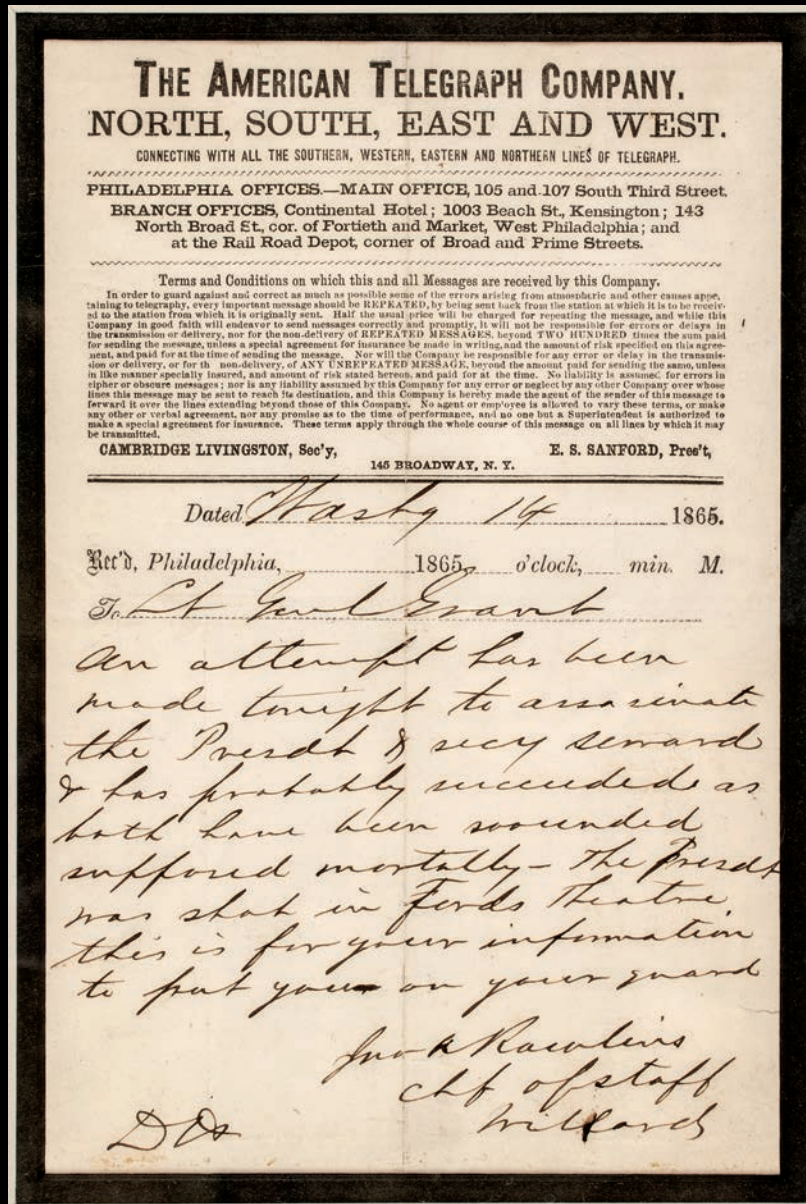 THE AMERICAN TELEGRAPH COMPANY.
NORTH, SOUTH, EAST AND WEST.
CONNECTING WITH ALL THE SOUTHERN, WESTERN, EASTERN AND NORTHERN LINES OF TELEGRAPH.
PHILADELPHIA OFFICES.—MAIN OFFICE, 105 and 107 South Third Street.
BRANCH OFFICES, Continental Hotel; 1003 Beach St., Kensington; 143
North Broad St., cor. of Fortieth and Market, West Philadelphia; and
at the Rail Road Depot, corner of Broad and Prime Streets.
Terms and Conditions on which this and all Messages are received by this Company.
In order to guard against and correct as much as possible some of the errors arising from atmospheric and other causes appe,
taining to telegraphy, every important message should be REPEATED, by being sent back from the station at which it is to be receiv-
ed to the station from which it is originally sent. Half the usual price will be charged for repeating the message, and while this
Company in good faith will endeavor to send messages correctly and promptly, it will not be responsible for errors or delays in
the transmission or delivery, nor for the non-delivery of REPEATED MESSAGES, beyond TWO HUNDRED times the sum paid
for sending the message, unless a special agreement for insurance be made in writing, and the amount of risk specified on this agree-
ment, and paid for at the time of sending the message. Nor will the Company be responsible for any error or delay in the transmis-
sion or delivery, or for th non-delivery, of ANY UNREPEATED MESSAGE, beyond the amount paid for sending the same, unless
in like manner specially insured, and amount of risk stated hereon, and paid for at the time. No liability is assumed for errors in
cipher or obscure messages; nor is any liability assumed by this Company for any error or neglect by any other Company over whose
lines this message may be sent to reach its destination, and this Company is hereby made the agent of the sender of this message to
forward it over the lines extending beyond those of this Company. No agent or employee is allowed to vary these terms, or make
any other or verbal agreement, nor any promise as to the time of performance, and no one but a Superintendent is authorized to
make a special agreement for insurance. These terms apply through the whole course of this message on all lines by which it may
be transmitted.
CAMBRIDGE LIVINGSTON, Sec'y, E. S. SANFORD, Pres't,
145 BROADWAY, N. Y.
Dated Washg 14 1865.
Rec'd, Philadelphia, 1865, o'clock, min. M.
To Lt Genl Grant
An attempt has been
made tonight to assasinate
the Presdt & secy seward
& has probably succeeded as
both have been wounded
supposed mortally - The Presdt
was shot in Fords Theatre
this is for your information
to put you on your guard
Jno A Rawlins
chf of staff
Willards